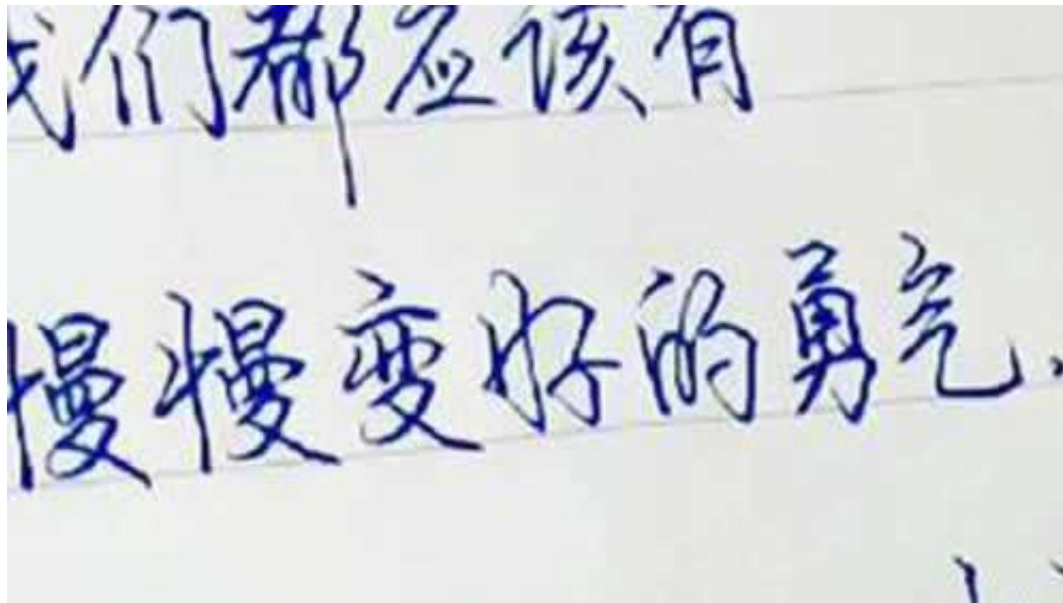 我们都应该有
慢慢变好的勇气、